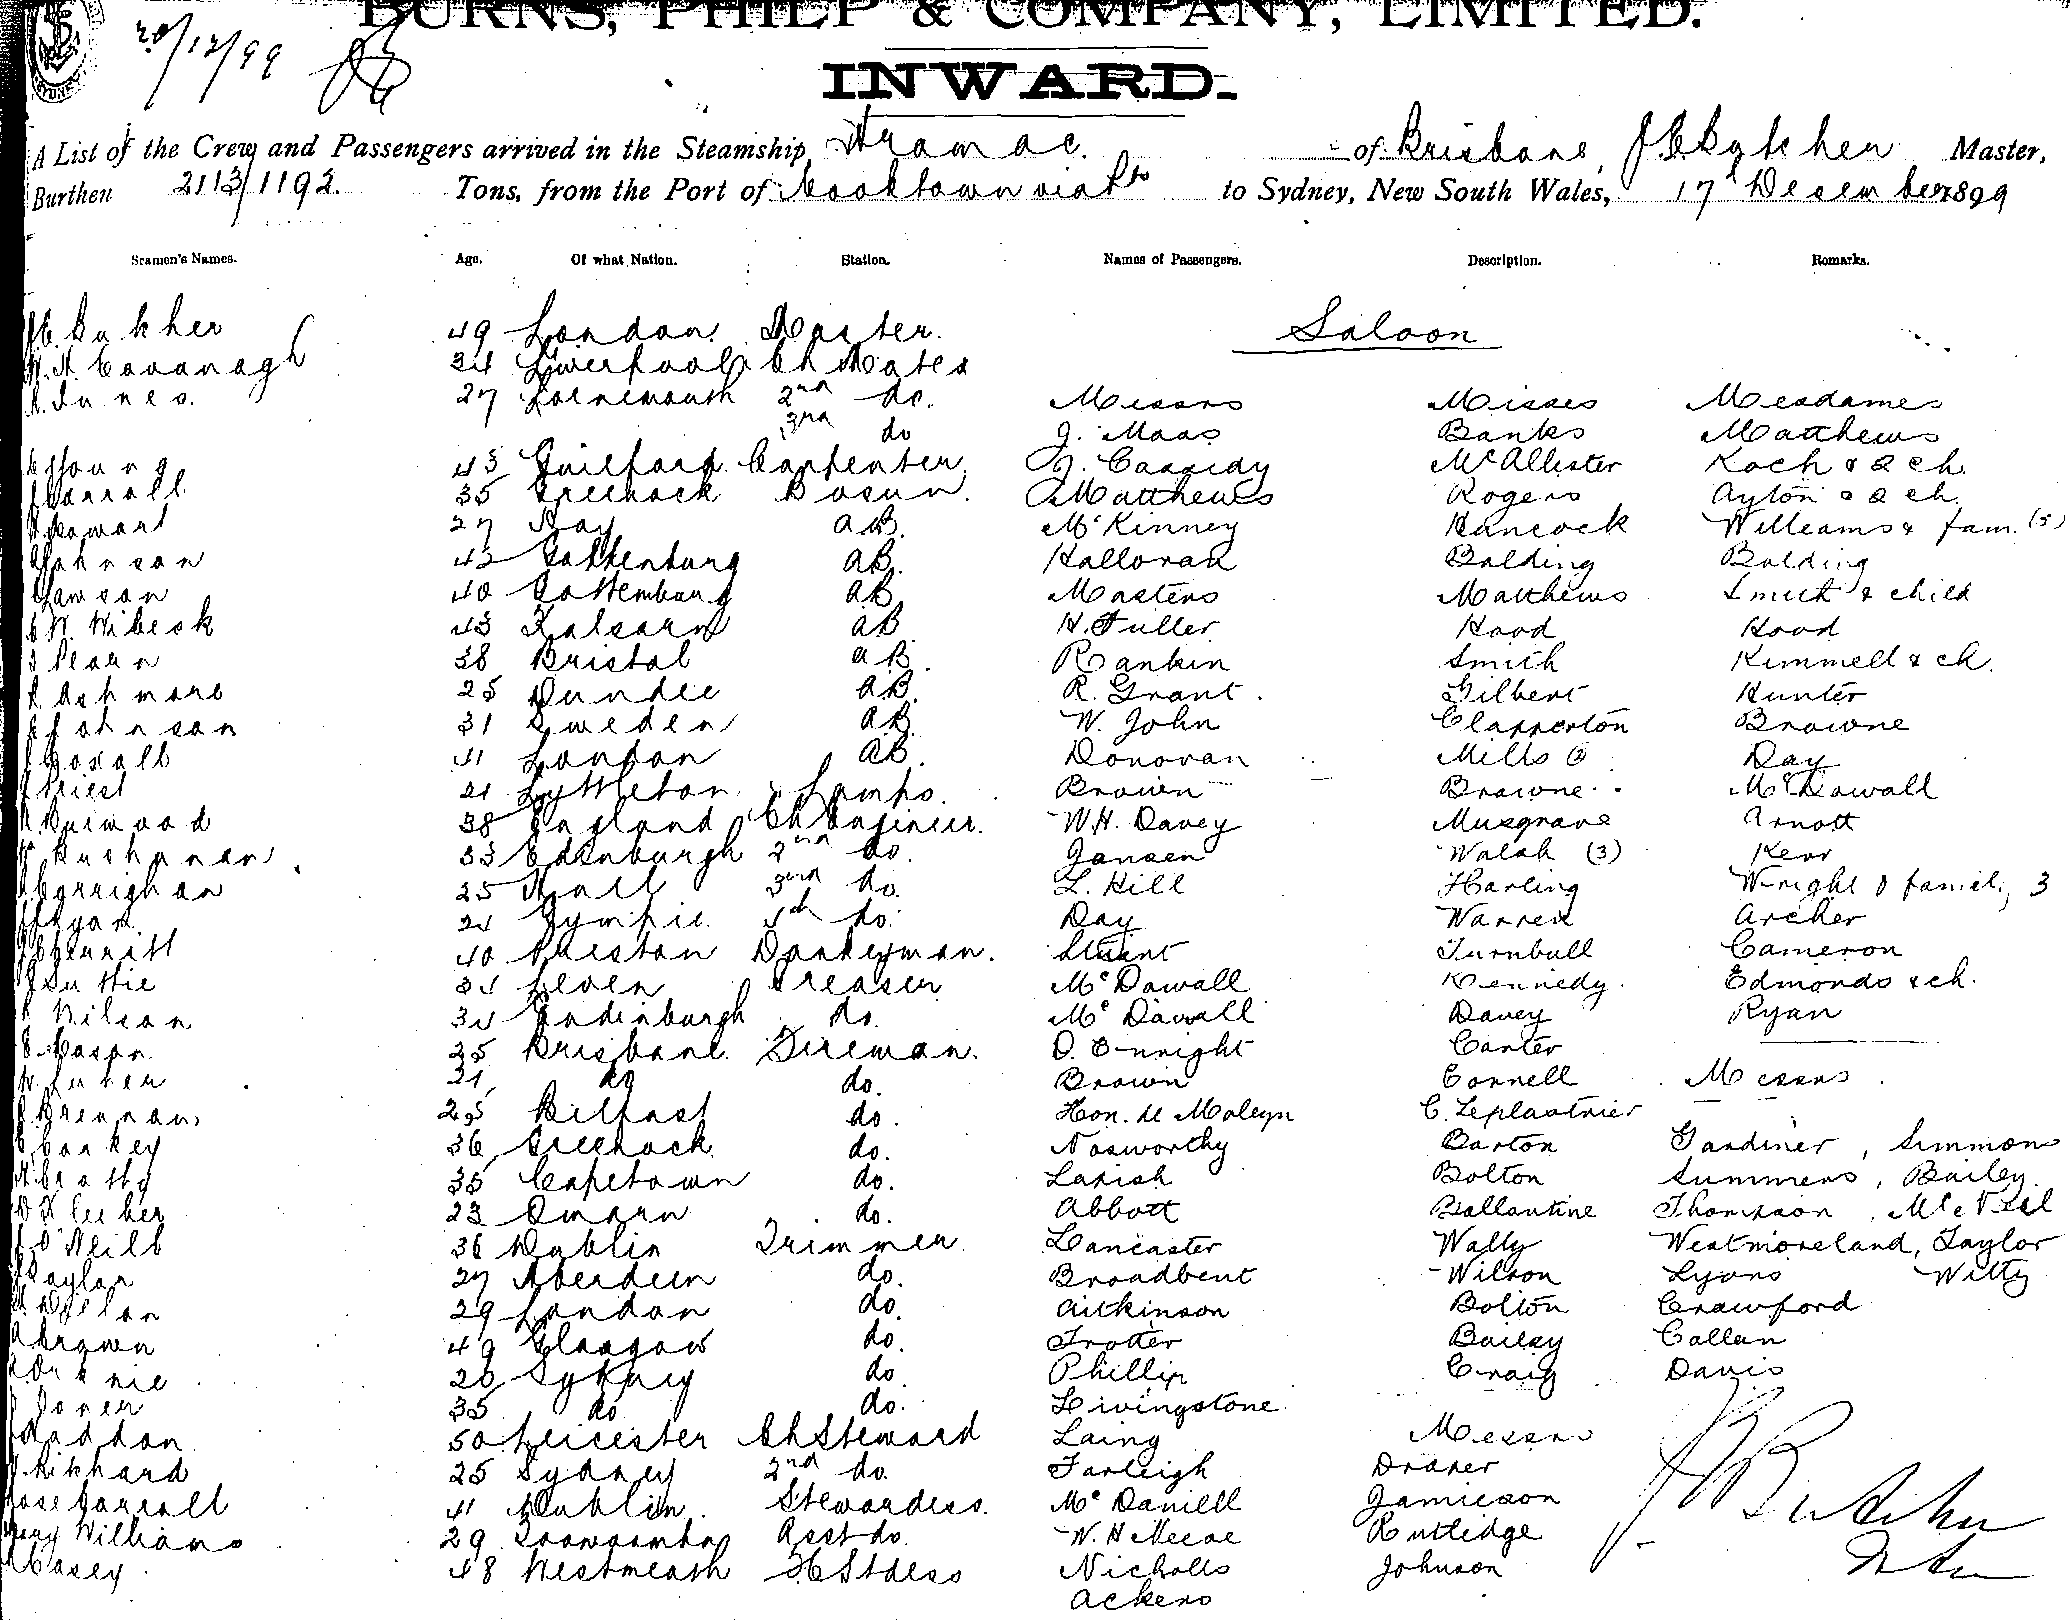 BURNS, PHILP & COMPANY, LIMITED.
20/12/99
INWARD.
A List of the Crew and Passengers arrived in the Steamship Aramac. of Brisbane, J C Butcher Master,
Burthen 2113/1192. Tons, from the Port of Cooktown via Pts to Sydney, New South Wales, 17 December 1899
Seamen's Names. Age. Of what Nation. Station. Names of Passengers. Description. Remarks.
49 London Master. Saloon
Cavanagh 34 Liverpool Ch Mates
27 2nd do. Messrs Misses Mesdames
3rd do J. Maas Banks Matthews
Young 43 Guilford Carpenter J. Cassidy McAllister Koch & 2 ch.
35 Greenock Bosun. Matthews Rogers Ayton & 2 ch.
27 AB. McKinney Hancock Williams & fam. (5)
Johnson 43 Gottenburg AB. Halloran Balding Balding
40 Gottemburg AB Masters Matthews Smith & child
43 AB H. Fuller Hood Hood
38 Bristol AB. Rankin Smith Kimmell & ch.
Ashmore 25 Dundee AB. R. Grant. Gilbert Hunter
Johnson 31 Sweden AB. W. John Clapperton Browne
41 London AB. Donovan Mills 2 Day
Priest 21 Lyttleton Lamps. Brown Browne McDowall
38 England Ch Engineer. W.H. Davey Musgrave Arnott
Buchanan 33 Edinburgh 2nd do. Jansen Walsh (3) Kerr
Corrighan 25 3rd do. L. Hill Harling Wright & family 3
Ryan 24 Gympie do. Day Warren Archer
40 Preston Donkeyman. Stuart Turnbull Cameron
Suttie 34 Leven Greaser McDowall Kennedy. Edmonds & ch.
Nilson 34 Endinburgh do. McDowall Davey Ryan
25 Brisbane Fireman. D. Enright Carter
do do. Brown Connell Messrs.
Brennan 25 Belfast do. Hon. de Moleyn C. Leplastrier
36 Greenock do. Nosworthy Barton Gardiner, Simmon
35 Capetown do. Larish Bolton Summers, Bailey.
23 do. Abbott Ballantine Thompson, McNeil
O'Neill 36 Dublin Trimmer Lancaster Wally Westmoreland, Taylor
Taylor 27 Aberdeen do. Broadbent Wilson Lyons Witty
29 London do. Aitkinson Bolton Crawford
Brown 49 Glasgow do. Trotter Bailey Callan
20 Sydney do. Phillip Craig Davis
Jones 35 do do. Livingstone
50 Leicester Ch Steward Laing Messrs
25 Sydney 2nd do. Farleigh Draper
Rose Carroll 41 Dublin. Stewardess. McDaniell Jamieson
Mary Williams 29 Toowoomba Asst do. W. H Mecoe Rutlidge
Casey 48 Westmeath Nicholls Johnson
Ackers
J C Butcher